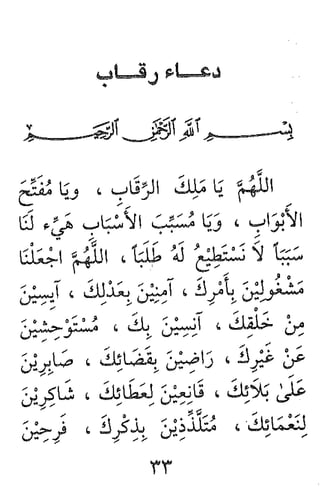 دعاء رقاب
بِسْمِ اللهِ الرَّحْمٰنِ الرَّحِيمِ
اَللّٰهُمَّ يَا مَلِكَ الرِّقَابِ ، وَيَا مُفَتِّحَ
الأَبْوَابِ ، وَيَا مُسَبِّبَ الأَسْبَابِ هَيِّء لَنَا
سَبَبًا لاَ نَسْتَطِيْعُ لَهُ طَلَبًا ، اَللّٰهُمَّ اجْعَلْنَا
مَشْغُولِيْنَ بِأَمْرِكَ ، آمِنِيْنَ بِعَدْلِكَ ، آيِسِيْنَ
مِنْ خَلْقِكَ ، آنِسِيْنَ بِكَ ، مُسْتَوْحِشِيْنَ
عَنْ غَيْرِكَ ، رَاضِيْنَ بِقَضَائِكَ ، صَابِرِيْنَ
عَلَىٰ بَلاَئِكَ ، قَانِعِيْنَ لِعَطَائِكَ ، شَاكِرِيْنَ
لِنَعْمَائِكَ ، مُتَلَذِّذِيْنَ بِذِكْرِكَ ، فَرِحِيْنَ
٣٣